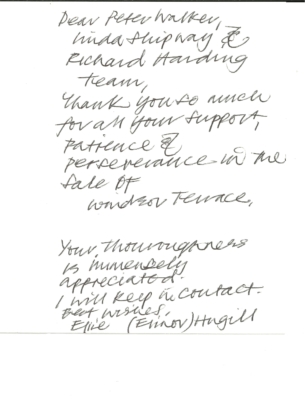 Dear Peter Walker,
Linda Shipway &
Richard Harding
team,
Thank you so much
for all your support,
patience &
perseverance in the
sale of
Windsor Terrace,
Your thoroughness
is immensely
appreciated.
I will keep in contact.
Best wishes,
Ellie (Elinor) Hugill